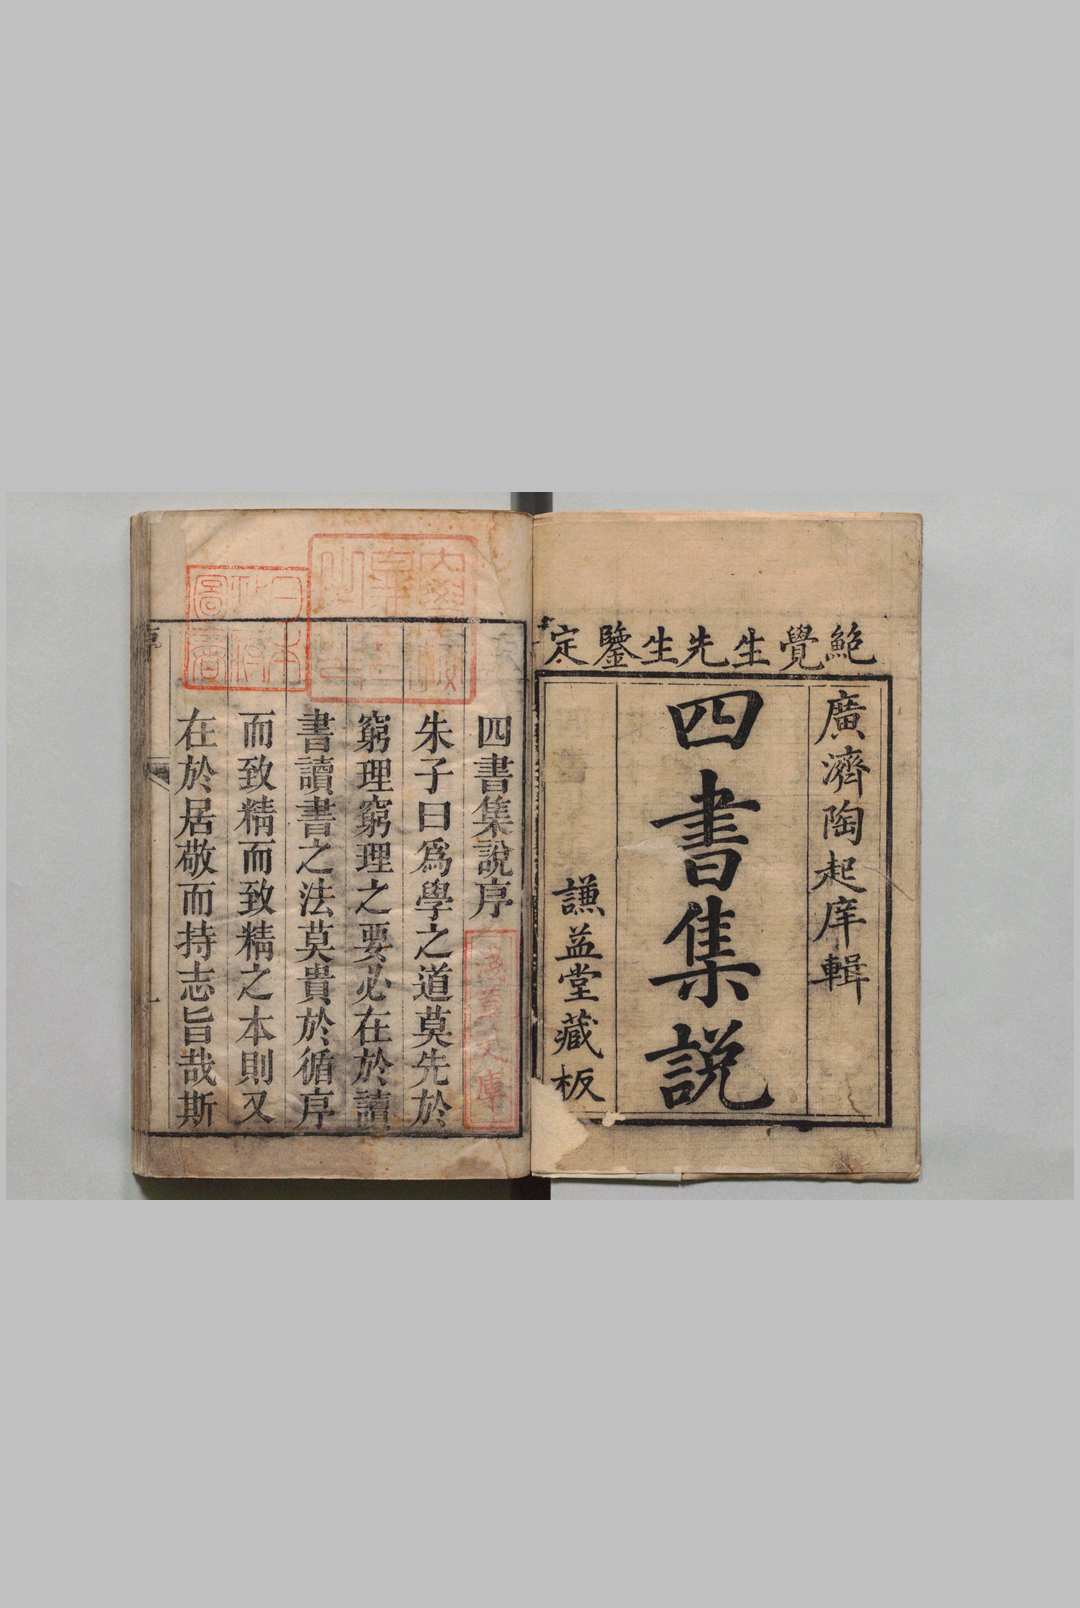 鮑覺生先生鑒定
廣濟陶起庠輯
四書集說
謙益堂藏板
四書集說序
朱子曰爲學之道莫先於
窮理窮理之要必在於讀
書讀書之法莫貴於循序
而致精而致精之本則又
在於居敬而持志旨哉斯
序
一
日本
政府
圖書